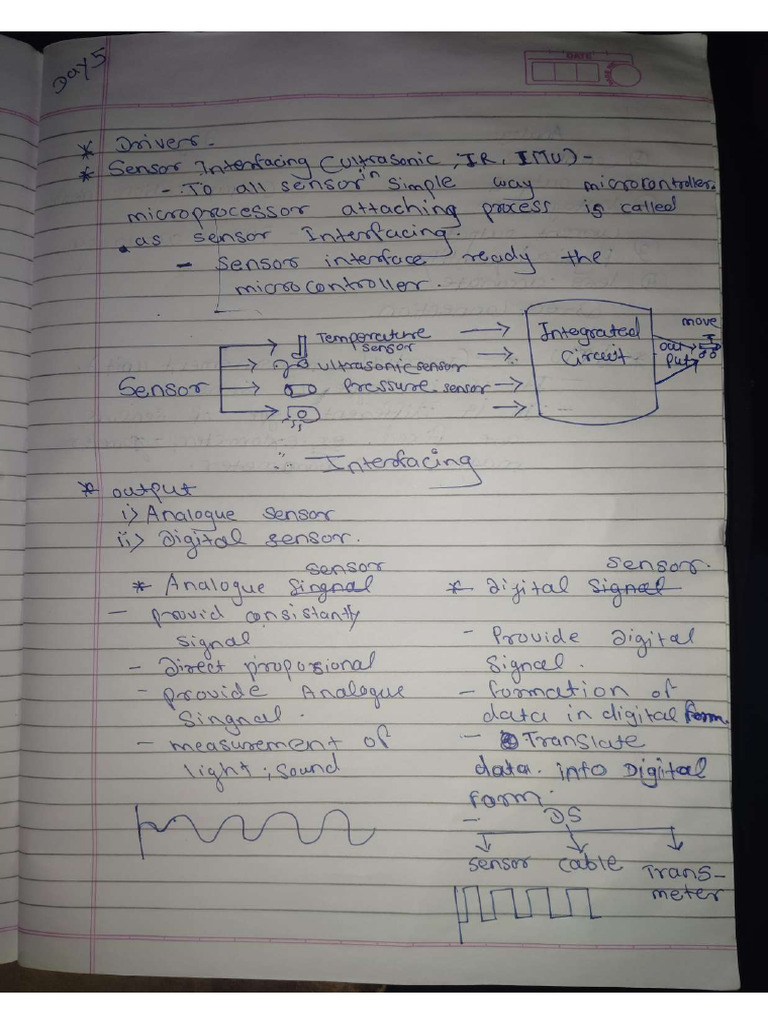 Day 5
DATE
* Drivers.
* Sensor Interfacing (ultrasonic, IR, IMU) -
- To all sensor in simple way microcontroller.
microprocessor attaching process is called
as sensor Interfacing.
- Sensor interface ready the
microcontroller.
Sensor
Temperature
sensor
ultrasonic sensor
Pressure sensor
Integrated
Circuit
out
put
move
∴ Interfacing
* output
i) Analogue sensor
ii) Digital sensor.
* Analogue Singnal sensor
- provid consistantly
signal
- Direct proposional
- provide Analogue
Singnal.
- measurement of
light, sound
* Digital Signal sensor.
- Provide Digital
signal.
- formation of
data in digital form.
- Translate
data. into Digital
form.
- DS
sensor cable Trans-
meter